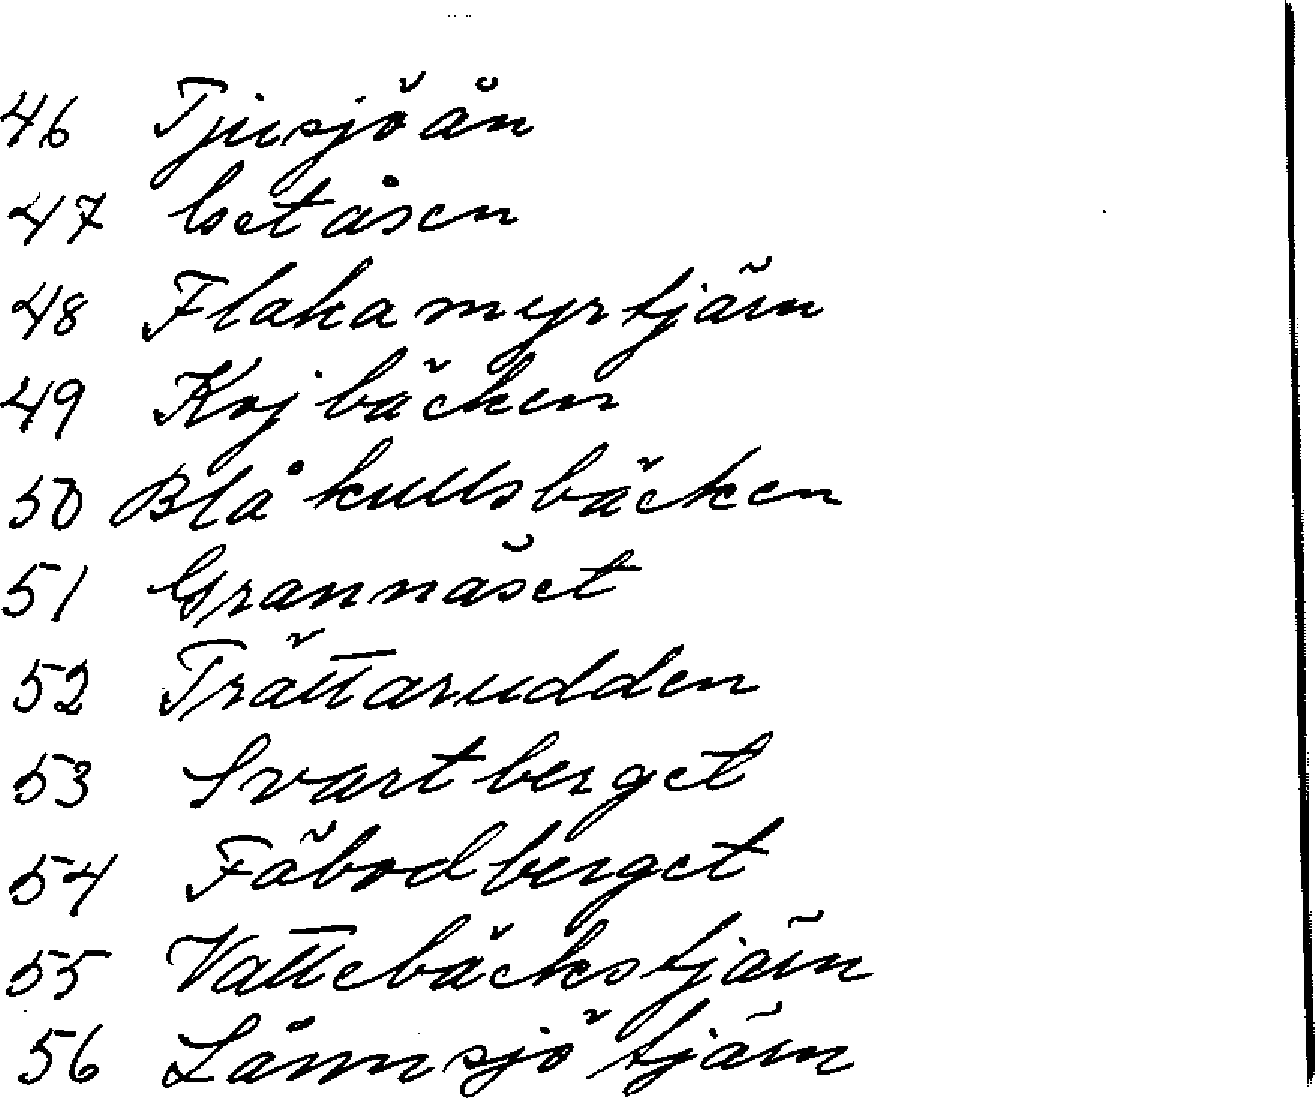 46 Tjusjöån
47 Loståsen
48 Flakamyrtjärn
49 Kojbäcken
50 Blåkullsbäcken
51 Grannäset
52 Trättarudden
53 Svartberget
54 Fäbodberget
55 Vattebäckstjärn
56 Lånnsjötjärn